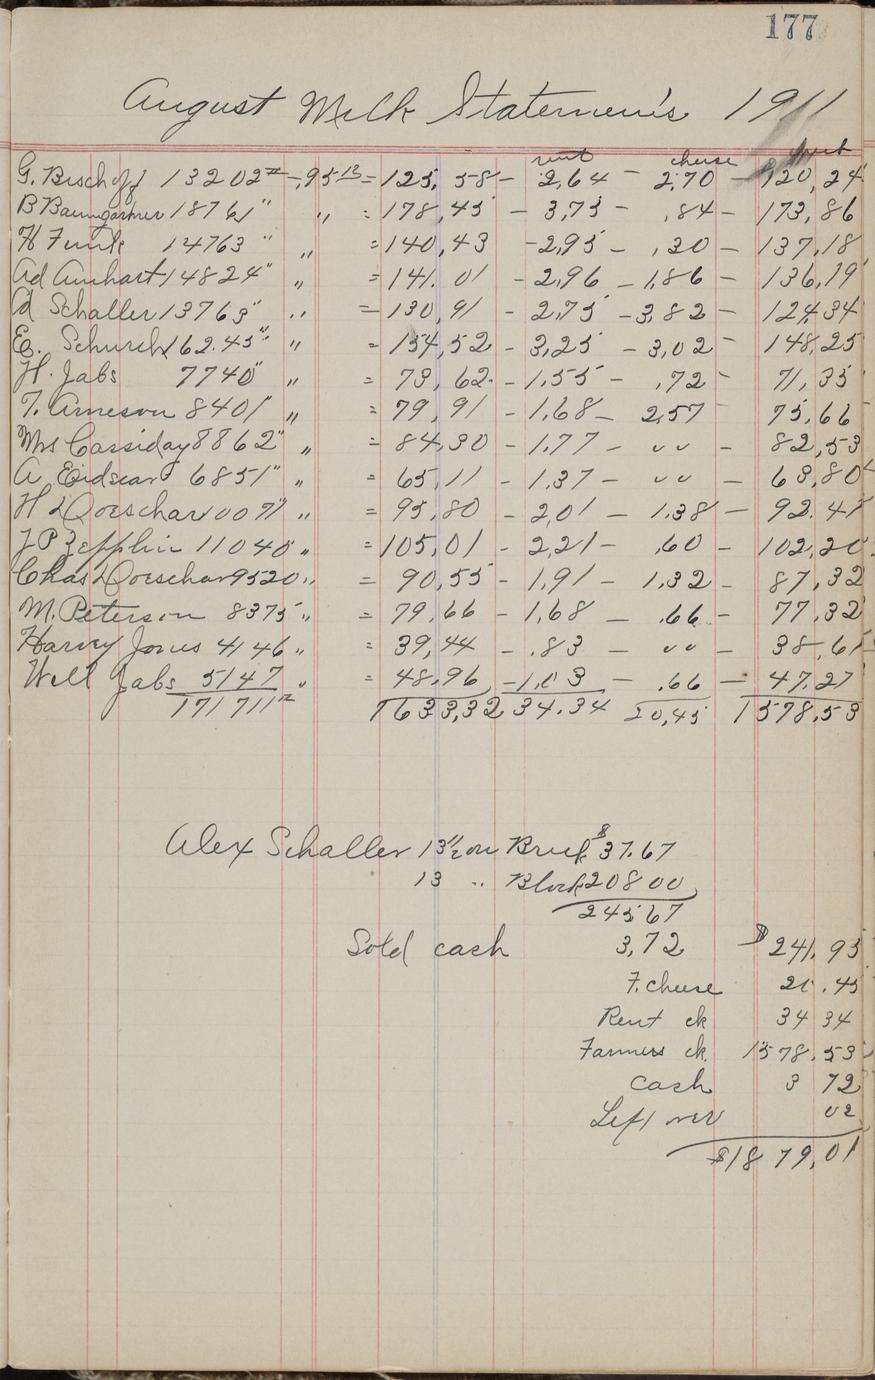 177
August Milk Statemen's 1911
rent cheese
G. Bischoff 13202 lb - ,95 12 = 125,58 - 2,64 - 2,70 - 120,24
B Baumgartner 18761 " " = 178,45 - 3,75 - ,84 - 173,86
H Funk 14763 " " = 140,43 - 2,95 - ,30 - 137,18
Ad Amhart 14824 " " = 141.01 - 2,96 - 1,86 - 136,19
A Schaller 13763 " " = 130,91 - 2,75 - 3,82 - 124,34
Ed. Schurch 162.45 " " = 154,52 - 3,25 - 3,02 - 148,25
H. Jabs 7740 " " = 73,62 - 1,55 - ,72 - 71,35
T. Arneson 8401 " " = 79,91 - 1,68 - 2,57 75,66
Mrs Cassiday 8862 " " = 84,30 - 1,77 - " - 82,53
A 6851 " " = 65,11 - 1,37 - " - 63,80
H Doeschar 10071 " " = 95,80 - 2,01 - 1,38 - 92.41
J P Zepplin 11040 " = 105,01 - 2,21 - ,60 - 102,20
Chas Doeschar 9520 " = 90,55 - 1,91 - 1,32 - 87,32
M. Peterson 8375 " = 79,66 - 1,68 - .66 - 77,32
Harvey Jones 4146 " = 39,44 - .83 - " - 38,61
Will Jabs 5147 " = 48,96 - 1.03 - .66 - 47,27
171711 lb 1633,32 34.34 20,45 1578,53
Alex Schaller 13 1/2 on Brick $37.67
13 " Block 208 00
245 67
Sold cash 3,72 $241.95
F. cheese 20.45
Rent ck 34 34
Farmers ck. 1578.53
Cash 3 72
Left over 02
$1879,01